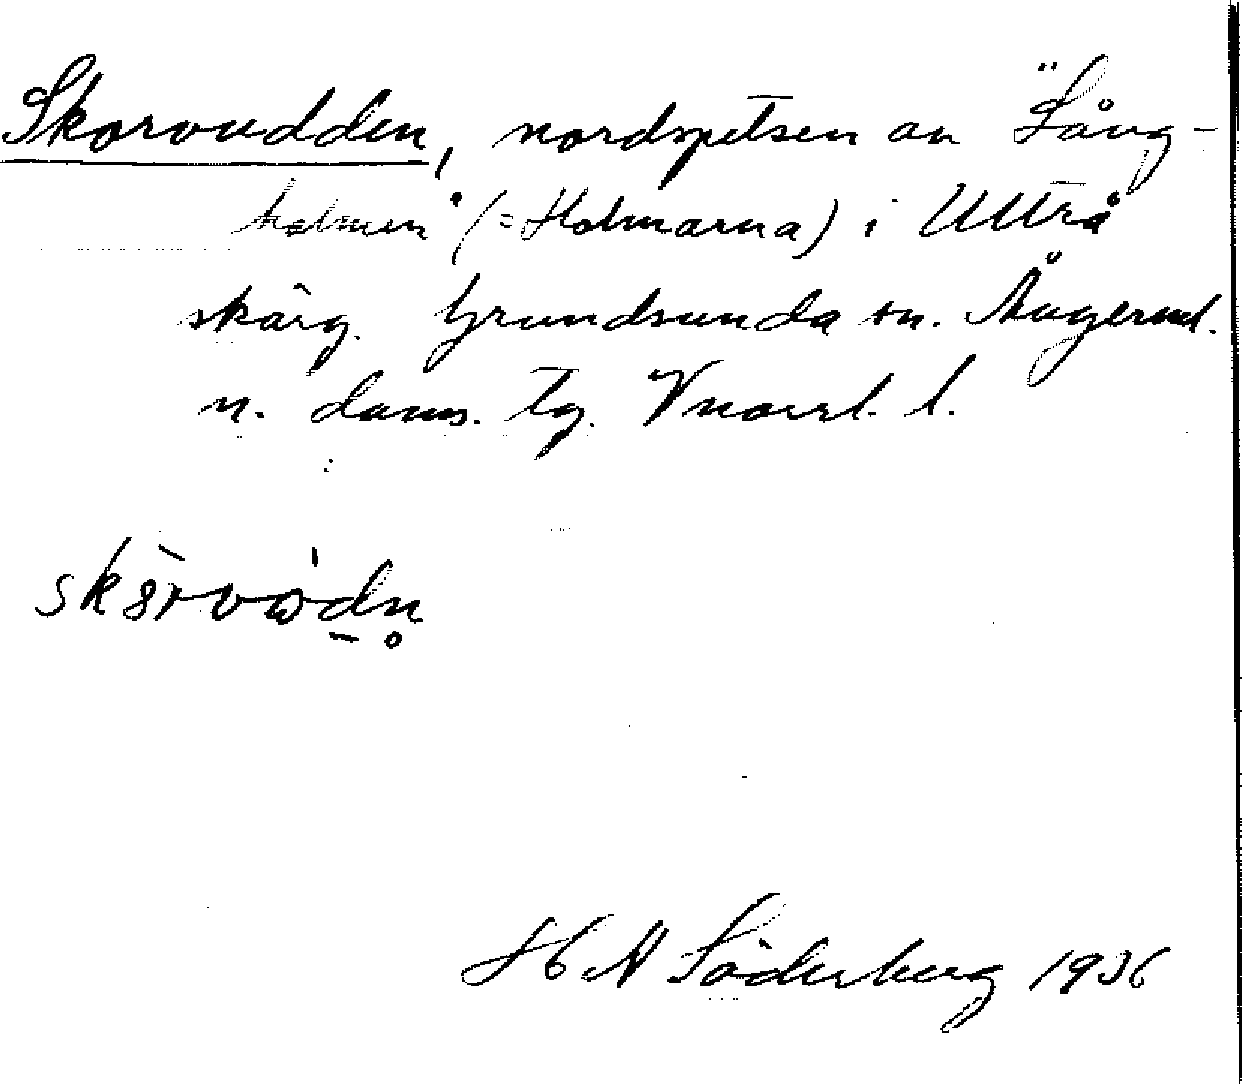 Skorvudden, nordspetsen av "Lång-
holmen" (= Holmarna) i Ultrå
skärg. Grundsunda sn. Ångerml.
n. doms. tg. Vnorrl. l.
H A Söderberg 1936